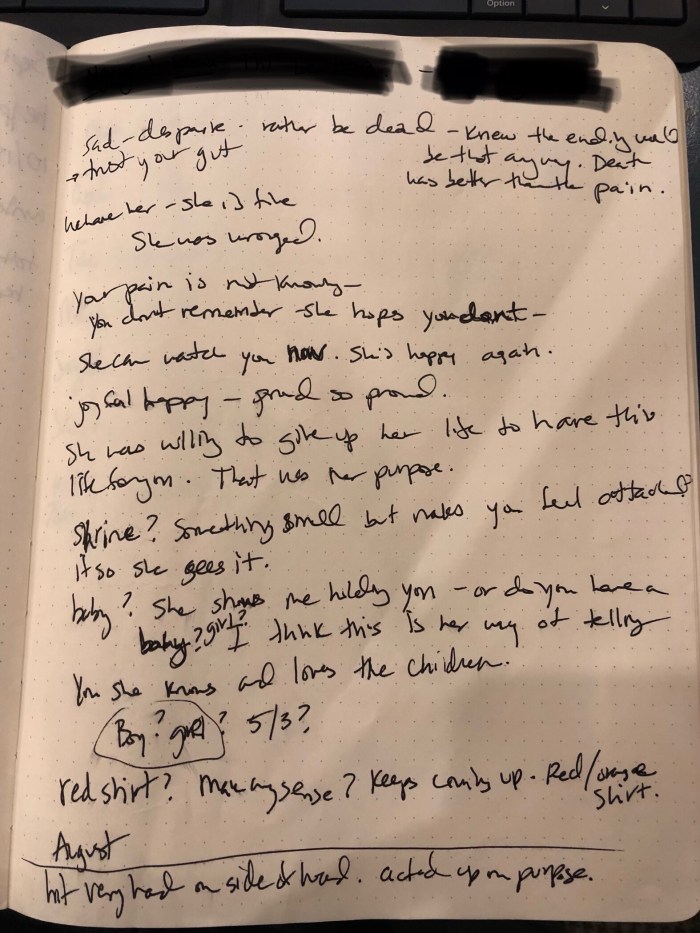 Option
sad - despare. rather be dead - Knew the ending would
→ trust your gut
be that anyway. Death
was better than the pain.
her - she is fine
She was wronged.
your pain is not
You don't remember - she hops you dont -
She can watch you now. She's happy again.
joyful happy - proud so proud.
Sh was willing to give up her life to have this
life for you. That was her purpose.
shrine? Something small but makes you feel attached?
it so she sees it.
baby? She shows me holding you - or do you have a
baby? girl? I think this is her way of telling
You she knows and loves the children.
Boy? girl? 5/3?
red shirt? Making sense? Keeps coming up. Red/orange
shirt.
August
hit very hard on side of head. acted up on purpose.